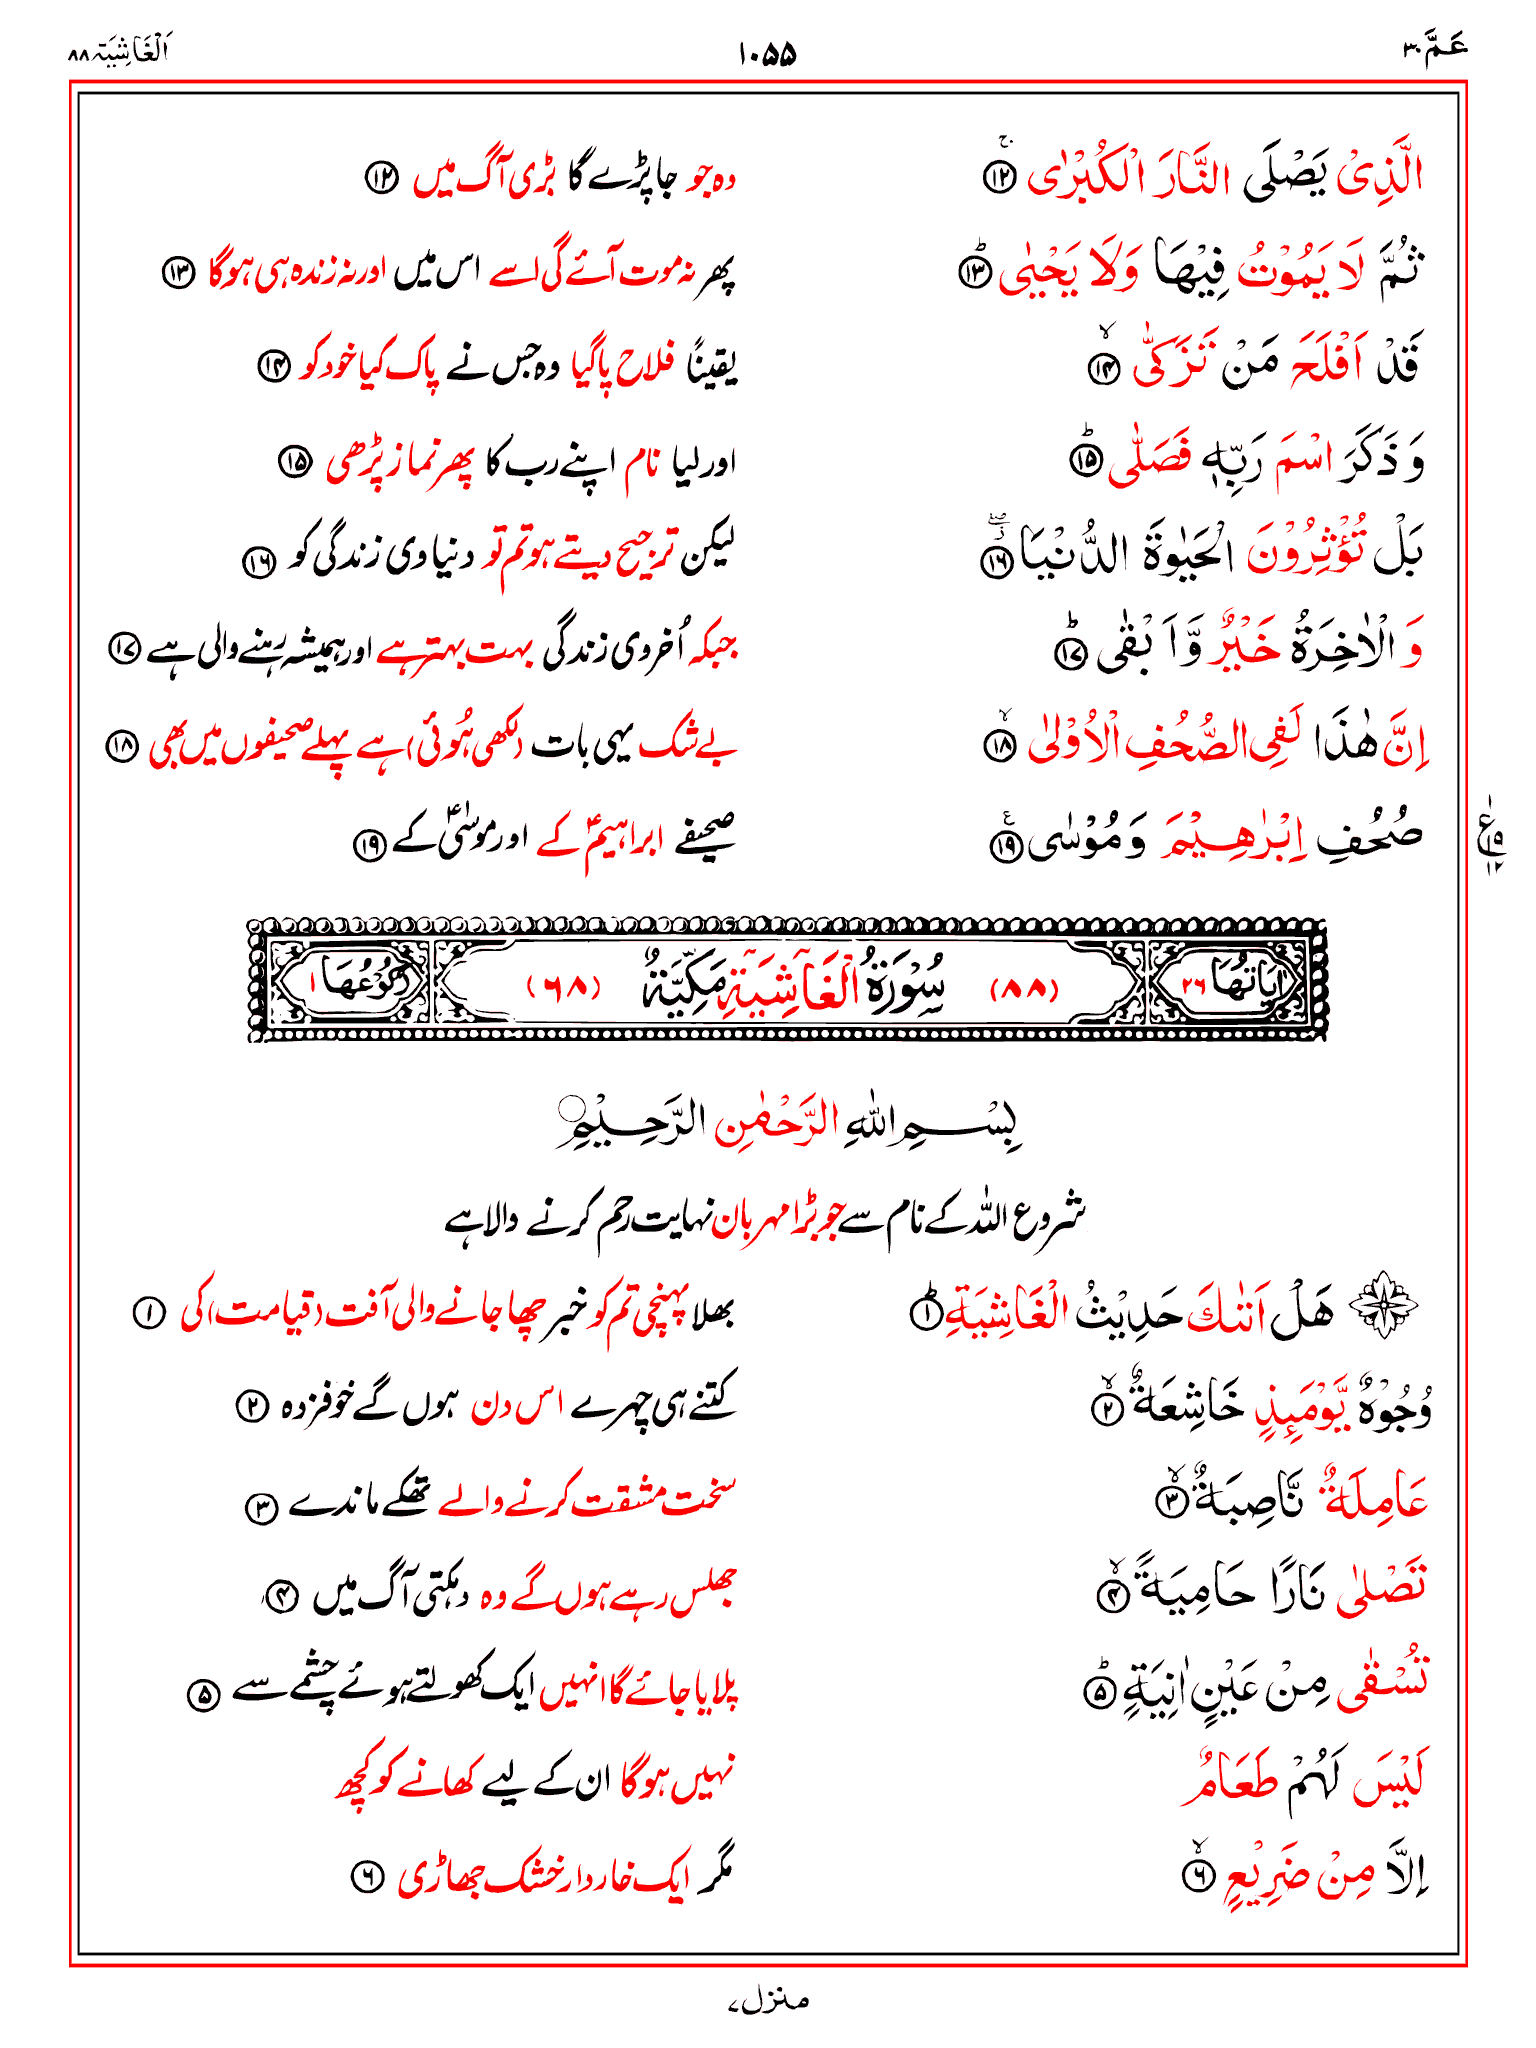 عَمَّ ٣٠ ١٠۵۵ اَلْغَاشِيَة ٨٨
الَّذِىْ يَصْلَى النَّارَ الْكُبْرٰى ۚ‏ ﴿۱۲﴾ وہ جو جا پڑے گا بڑی آگ میں ﴿۱۲﴾
ثُمَّ لَا يَمُوْتُ فِيْهَا وَلَا يَحْيٰىؕ‏ ﴿۱۳﴾ پھر نہ موت آئے گی اسے اس میں اور نہ زندہ ہی ہوگا ﴿۱۳﴾
قَدْ اَفْلَحَ مَنْ تَزَكّٰىۙ‏ ﴿۱۴﴾ یقیناً فلاح پا گیا وہ جس نے پاک کیا خود کو ﴿۱۴﴾
وَذَكَرَ اسْمَ رَبِّهٖ فَصَلّٰىؕ‏ ﴿۱۵﴾ اور لیا نام اپنے رب کا پھر نماز پڑھی ﴿۱۵﴾
بَلْ تُؤْثِرُوْنَ الْحَيٰوةَ الدُّنْيَا ﴿۱۶﴾ لیکن ترجیح دیتے ہو تم تو دنیاوی زندگی کو ﴿۱۶﴾
وَالْاٰخِرَةُ خَيْرٌ وَّاَبْقٰىؕ‏ ﴿۱۷﴾ جبکہ اُخروی زندگی بہت بہتر ہے اور ہمیشہ رہنے والی ہے ﴿۱۷﴾
اِنَّ هٰذَا لَفِى الصُّحُفِ الْاُوْلٰىۙ‏ ﴿۱۸﴾ بے شک یہی بات (لکھی ہُوئی) ہے پہلے صحیفوں میں بھی ﴿۱۸﴾
صُحُفِ اِبْرٰهِيْمَ وَمُوْسٰى ﴿۱۹﴾ صحیفے ابراہیمؑ کے اور موسٰیؑ کے ﴿۱۹﴾
ع ۱۹ ۱۲
اٰيَاتُهَا ٢٦ (٨٨) سُوْرَةُ الْغَاشِيَةِ مَكِّيَّةٌ (٦٨) رُكُوْعُهَا ١
بِسْمِ اللهِ الرَّحْمٰنِ الرَّحِيْمِ
شروع اللہ کے نام سے جو بڑا مہربان نہایت رحم کرنے والا ہے
هَلْ اَتٰىكَ حَدِيْثُ الْغَاشِيَةِؕ‏ ﴿۱﴾ بھلا پہنچی تم کو خبر چھا جانے والی آفت (قیامت) کی ﴿۱﴾
وُجُوْهٌ يَّوْمَئِذٍ خَاشِعَةٌ ۙ‏ ﴿۲﴾ کتنے ہی چہرے اس دن ہوں گے خوفزدہ ﴿۲﴾
عَامِلَةٌ نَّاصِبَةٌ ۙ‏ ﴿۳﴾ سخت مشقت کرنے والے تھکے ماندے ﴿۳﴾
تَصْلٰى نَارًا حَامِيَةً ۙ‏ ﴿۴﴾ جھلس رہے ہوں گے وہ دہکتی آگ میں ﴿۴﴾
تُسْقٰى مِنْ عَيْنٍ اٰنِيَةٍؕ‏ ﴿۵﴾ پلایا جائے گا انہیں ایک کھولتے ہوئے چشمے سے ﴿۵﴾
لَيْسَ لَهُمْ طَعَامٌ نہیں ہوگا ان کے لیے کھانے کو کچھ
اِلَّا مِنْ ضَرِيْعٍۙ‏ ﴿۶﴾ مگر ایک خاردار خشک جھاڑی ﴿۶﴾
منزل ۷